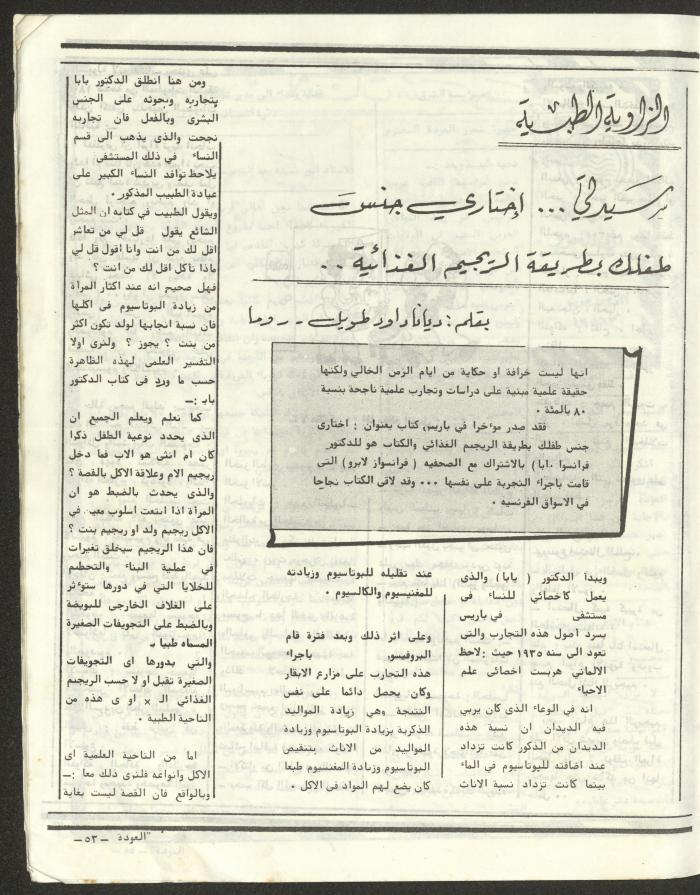 الزاوية الطبية
سيدتي ... إختاري جنس
طفلك بطريقة الريجيم الغذائية ..
بقلم : ديانا داود طويل - روما
انها ليست خرافة او حكاية من ايام الزمن الخالي ولكنها
حقيقة علمية مبنية على دراسات وتجارب علمية ناجحة بنسبة
٨٠ بالمئة .
فقد صدر موءخرا في باريس كتاب بعنوان : اختارى
جنس طفلك بطريقة الريجيم الغذائي والكتاب هو للدكتور
فرانسوا بابا ) بالاشتراك مع الصحفيه ( فرانسواز لابرو) التى
قامت باجراء التجربة على نفسها ... وقد لاقى الكتاب نجاحا
في الاسواق الفرنسيه .
ويبدأ الدكتور ( بابا ) والذى
يعمل كاخصائي للنساء فى
مستشفى في باريس
بسرد اصول هذه التجارب والتى
تعود الى سنه ١٩٣٥ حيث : لاحظ
الالماني هربست اخصائى علم
الاحياء
انه في الوعاء الذى كان يربي
فيه الديدان ان نسبة هذه
الديدان من الذكور كانت تزداد
عند اضافته للبوتاسيوم في الماء
بينما كانت تزداد نسبة الاناث
عند تقليله للبوتاسيوم وزيادته
للمغنيسيوم والكالسيوم .
وعلى اثر ذلك وبعد فترة قام
البروفيسور باجراء
هذه التجارب على مزارع الابقار
وكان يحصل دائما على نفس
النتيجة وهي زيادة المواليد
الذكرية بزيادة البوتاسيوم وزيادة
المواليد من الاناث بتنقيص
البوتاسيوم وزيادة المغنسيوم طبعا
كان يضع لهم المواد فى الاكل .
ومن هنا انطلق الدكتور بابا
بتجاربه وبحوثه على الجنس
البشرى وبالفعل فان تجاربه
نجحت والذى يذهب الى قسم
النساء في ذلك المستشفى
يلاحظ توافد النساء الكبير على
عيادة الطبيب المذكور .
ويقول الطبيب في كتابه ان المثل
الشائع يقول قل لي من تعاشر
اقل لك من انت وانا اقول قل لي
ماذا تأكل اقل لك من انت ؟
فهل صحيح انه عند اكثار المرأة
من زيادة البوتاسيوم فى اكلها
فان نسبة انجابها لولد تكون اكثر
من بنت ؟ يجوز ؟ ولنرى اولا
التفسير العلمى لهذه الظاهرة
حسب ما ورد فى كتاب الدكتور
بابـ :ــ
كما نعلم ويعلم الجميع ان
الذى يحدد نوعية الطفل ذكرا
كان ام انثى هو الاب فما دخل
ريجيم الام وعلاقة الاكل بالقصة ؟
والذى يحدث بالضبط هو ان
المرأة اذا اتبعت اسلوب معيـ في
الاكل ريجيم ولد او ريجيم بنت ؟
فان هذا الريجيم سيخلق تغيرات
في عملية البناء والتحطيم
للخلايا التي في دورها ستوءثر
على الغلاف الخارجى للبويضة
وبالضبط على التجويفات الصغيرة
المسماه طبيا بـ
والتي بدورها اى التجويفات
الصغيرة تقبل او لا حسب الريجيم
الغذائي الـ x او ى هذه من
الناحية الطبية .
اما من الناحية العلمية اى
الاكل وانواعه فلنرى ذلك معا :ــ
وبالواقع فان القصة ليست بغاية
العودة - ٥٣ -